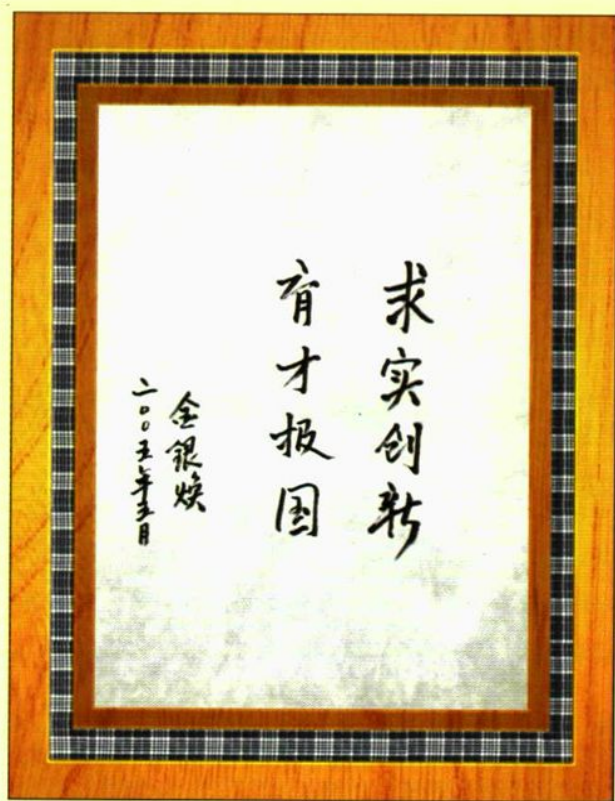 求实创新
育才报国
金银焕
二〇〇五年五月